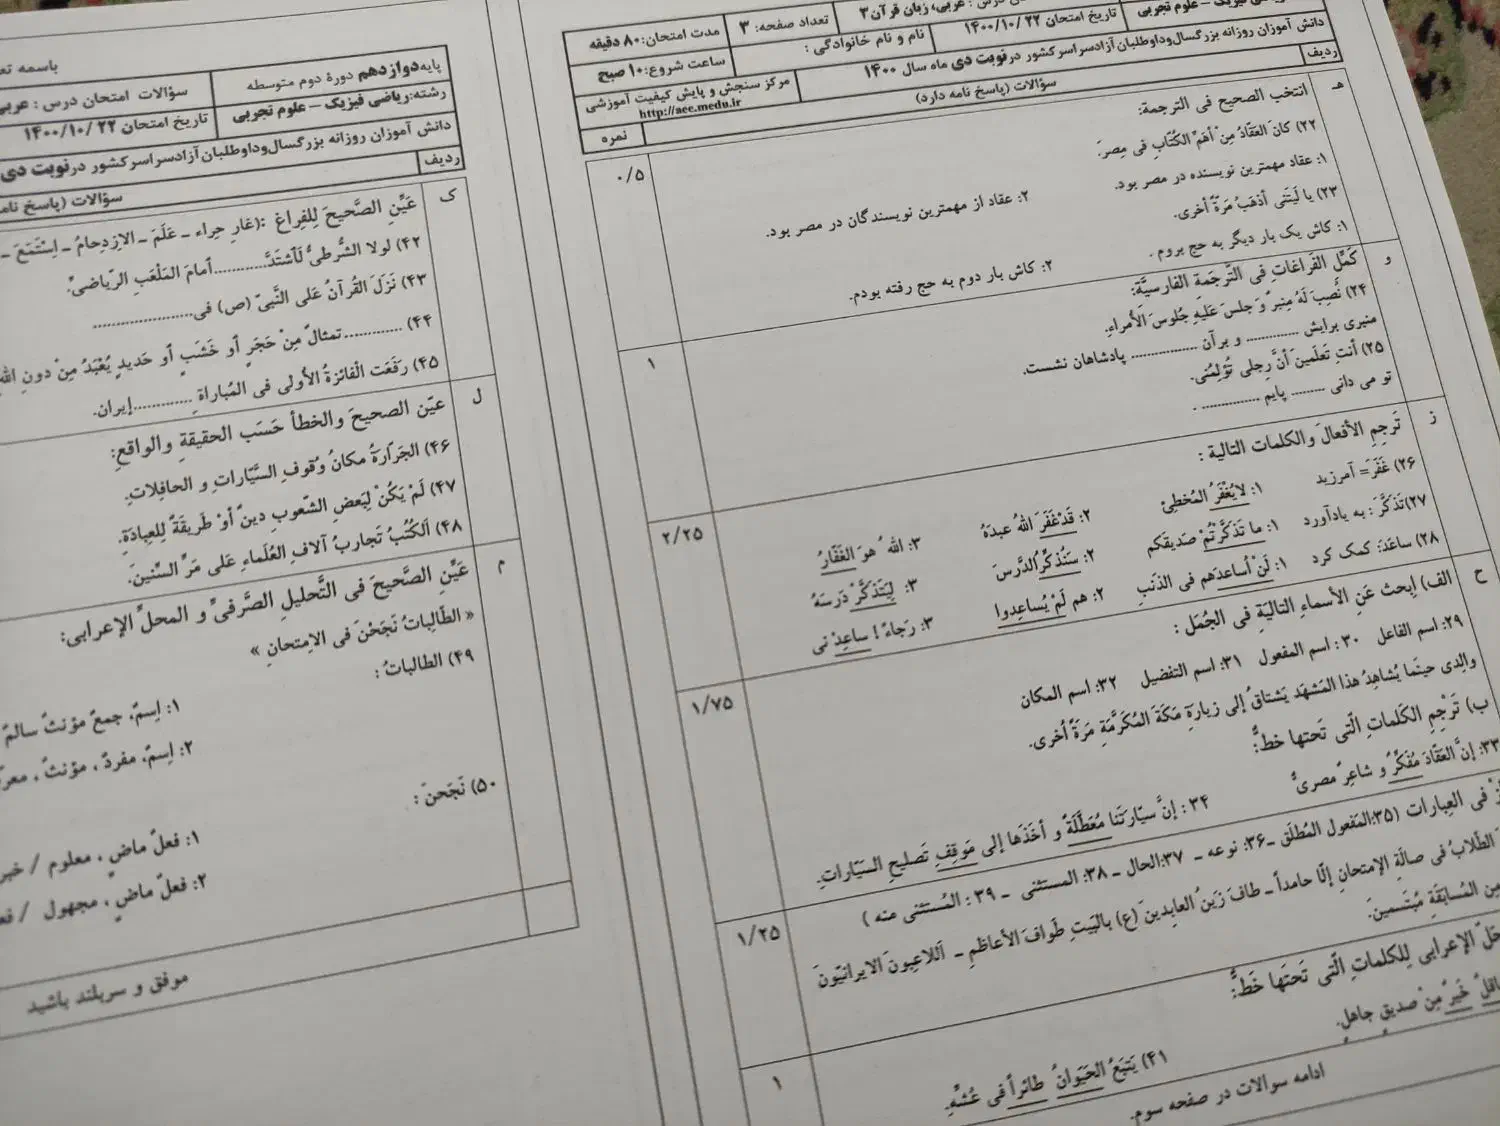 درس : عربی، زبان قرآن ۳
تعداد صفحه: ۳
مدت امتحان: ۸۰ دقیقه
ریاضی فیزیک – علوم تجربی
تاریخ امتحان ۲۲ /۱۴۰۰/۱۰
نام و نام خانوادگی :
ساعت شروع: ۱۰ صبح
دانش آموزان روزانه بزرگسال وداوطلبان آزادسراسرکشور درنوبت دی ماه سال ۱۴۰۰
مرکز سنجش و پایش کیفیت آموزشی
http://aee.medu.ir
ردیف
سؤالات (پاسخ نامه دارد)
نمره
هـ
انتخب الصحیح فی الترجمة:
۰/۵
۲۲) کانَ العَقّادُ مِنْ أهَمِّ الکُتّابِ فی مِصرَ.
۱: عقاد مهمترین نویسنده در مصر بود.
۲: عقاد از مهمترین نویسندگان در مصر بود.
۲۳) یا لَیتَنی أذهَبُ مَرَةً أخری.
۱: کاش یک بار دیگر به حج بروم .
۲: کاش بار دوم به حج رفته بودم.
و
کَمِّل الفَراغاتِ فی التَّرجَمَة الفارسیَّة:
۱
۲۴) نُصِبَ لَهُ مِنبرٌ وَ جلسَ عَلیهِ جُلوسَ الأمراءِ.
منبری برایش ............ و برآن ............... پادشاهان نشست.
۲۵) أنتِ تَعلَمینَ أنَّ رِجلی تُؤلِمُنی.
تو می دانی ........ پایم .............. .
ز
تَرجِمِ الأفعالَ و الکلمات التالیة :
۲/۲۵
۲۶) غَفَرَ= آمرزید
۱: لایُغْفَرُ المُخطِئ
۲: قَدْغَفَرَ اللهُ عبدَهُ
۳: اللهُ هوَ الغَفّارُ
۲۷)تَذَکَّرَ : به یادآورد
۱: ما تَذَکَّرْتُمْ صَدیقَکم
۲: سَنُذَکِّرُ الدَّرسَ
۳: لِیَتَذَکَّرْ دَرسَهُ
۲۸) ساعَدَ: کمک کرد
۱: لَنْ أساعدَهم فی الذَنبِ
۲: هم لَمْ یُساعِدوا
۳: رَجاءً ! ساعِدْ نی
ح
الف) اِبحث عَنِ الأسماءِ التالیَةِ فی الجُمَل :
۱/۷۵
۲۹: اسم الفاعل ۳۰ : اسم المفعول ۳۱: اسم التفضیل ۳۲: اسم المکان
والِدی حینَما یُشاهِدُ هذا المَشهَدَ یَشتاقُ إلی زیارَةِ مَکَةَ المُکَرَّمَةِ مَرَةً أخری.
ب) تَرجِمِ الکَلِماتِ الّتی تَحتها خطٌّ:
۳۳: إنَّ العَقّادَ مُفَکِّرٌ و شاعِرٌ مصریٌّ
۳۴ : إنَّ سیّارَتَنا مُعَطَّلَةٌ و أخَذَها إلی مَوقِفِ تَصلیحِ السَیّاراتِ.
۱/۲۵
فی العِبارات (۳۵:المَفعول المُطلَق -۳۶: نوعه - ۳۷:الحال - ۳۸: المستثنی - ۳۹ : المُستَثنی منه )
الطّلابُ فی صالَةِ الإمتحانِ إلّا حامداً - طافَ زَینُ العابِدینَ (ع) بالبَیتِ طَوافَ الأعاظمِ - اَللاعِبونَ الایرانیّونَ
من المُسابَقَةِ مُبتَسمینَ.
الإعرابی لِلکلماتِ الّتی تَحتَها خَطٌّ:
۱
خَیرٌ مِنْ صدیقٍ جاهلٍ.
۴۱) یَتبَعُ الحَیَوانُ طائراً فی عُشِّهِ.
ادامه سوالات در صفحه سوم.
باسمه تعا
سؤالات امتحان درس : عربی
پایه دوازدهم دورهٔ دوم متوسطه
رشته:ریاضی فیزیک – علوم تجربی
تاریخ امتحان ۲۲ /۱۴۰۰/۱۰
دانش آموزان روزانه بزرگسال وداوطلبان آزادسراسرکشور درنوبت دی
ردیف
سؤالات (پاسخ نامه
ک
عَیِّنِ الصَّحیحَ لِلفِراغِ :(غارِ حِراء - عَلَمَ - الاِزدِحامُ - اِسْتَمَعَ -
۴۲) لولا الشُّرطیُّ لَاُشتَدَّ............أمامَ المَلْعَبِ الرّیاضیِّ.
۴۳) نَزَلَ القُرآنُ عَلی النَّبیّ (ص) فی......................
۴۴) ............تمثالٌ مِنْ حَجَرٍ أو خَشَبٍ أو حَدیدٍ یُعْبَدُ مِنْ دونِ اللهِ
۴۵) رَفَعَت الْفائزةُ الأولی فی المُباراةِ ............إیران.
ل
عیّن الصحیحَ والخطأ حَسَب الحقیقةِ والواقعِ:
۴۶) الجَرّارَةُ مکانُ وُقوفِ السَّیّارات و الحافِلاتِ.
۴۷) لَمْ یَکُنْ لِبَعضِ الشّعوبِ دینٌ أوْ طَریقَةٌ لِلعِبادَةِ.
۴۸) اَلکُتُبُ تَجاربُ آلافِ العُلَماءِ عَلی مَرِّ السِّنینَ.
م
عَیِّنِ الصَّحیحَ فی التَّحلیلِ الصَّرفیِّ و المحلِّ الإعرابی:
« الطّالِباتُ نَجَحْنَ فی الاِمتحانِ »
۴۹) الطالباتُ :
۱: اِسمٌ، جمعُ مؤنثٌ سالمٌ
۲: اِسمٌ، مفردٌ ، مؤنثٌ ،
۵۰) نَجَحنَ :
۱: فعلٌ ماضٍ ، معلوم / خبر
۲: فعلٌ ماضٍ ، مجهول /
موفق و سربلند باشید